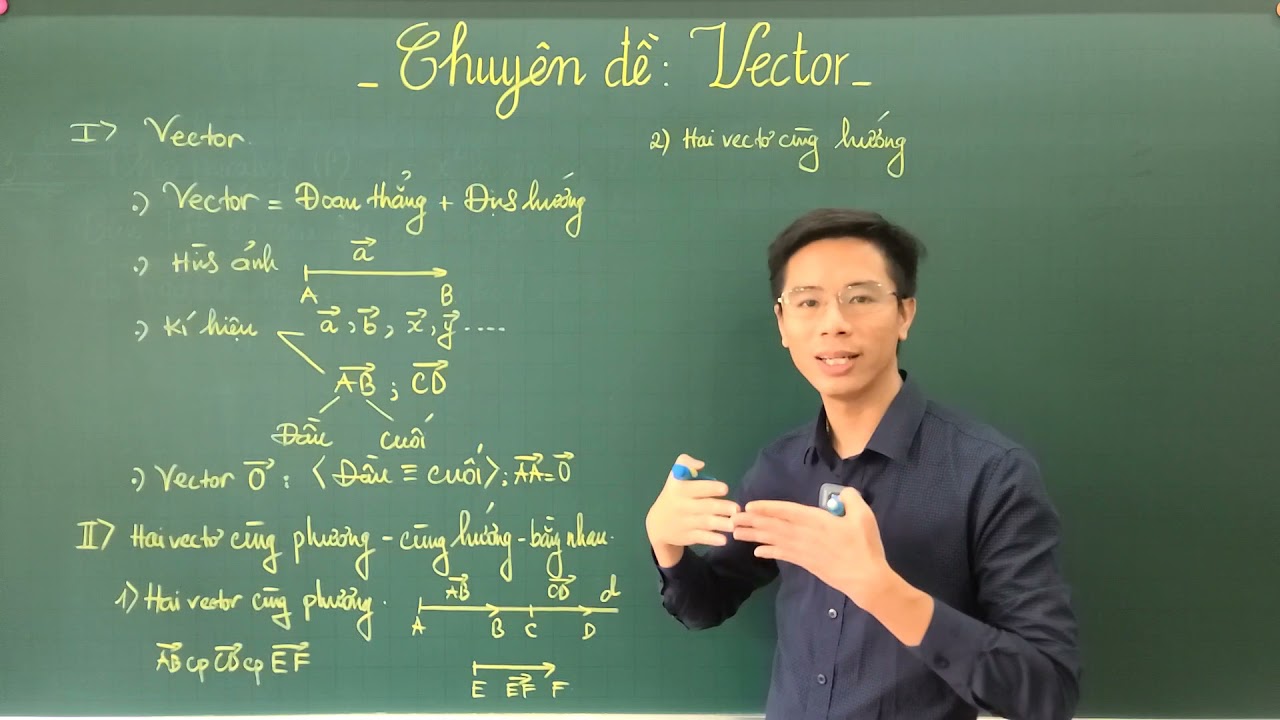 _ Chuyên đề: Vector _
I> Vector
.) Vector = Đoạn thẳng + Định hướng
.) Hình ảnh
a⃗
A B
.) Kí hiệu a⃗, b⃗, x⃗, y⃗ ....
AB⃗ ; CD⃗
Đầu cuối
.) Vector 0⃗ : <Đầu ≡ cuối>; AA⃗ = 0⃗
II> Hai vectơ cùng phương - cùng hướng - bằng nhau.
1) Hai vector cùng phương.
AB⃗ CD⃗ d
A B C D
AB⃗ cp CD⃗ cp EF⃗
E EF⃗ F
2) Hai vectơ cùng hướng